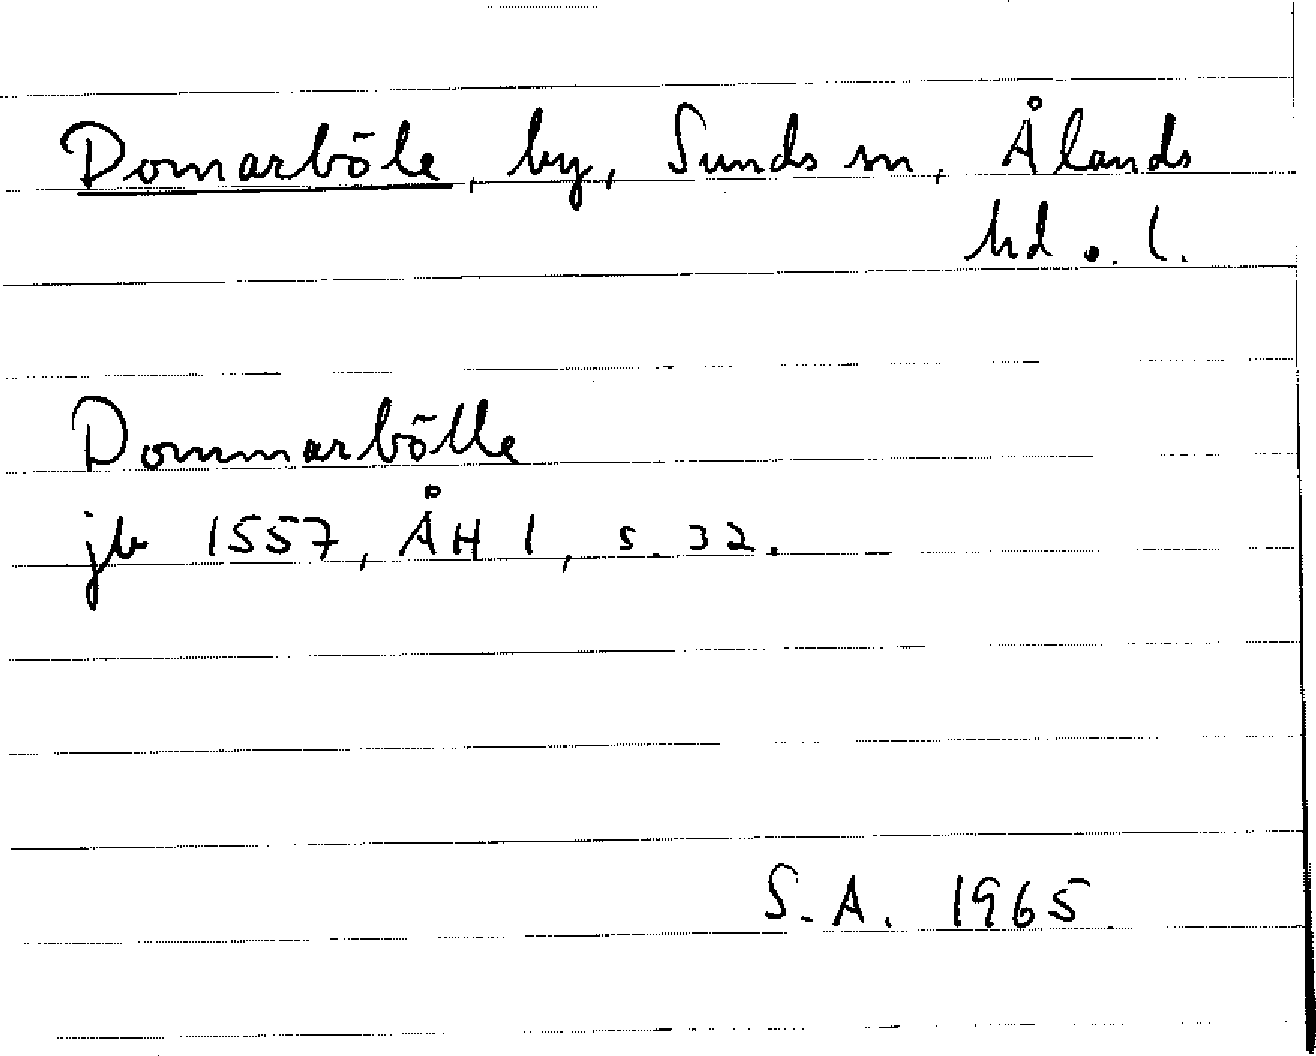 Domarböle, by, Sunds sn, Ålands
hd o. l.
Dommarbölle
jb 1557, ÅH 1, s. 32.
S.A. 1965